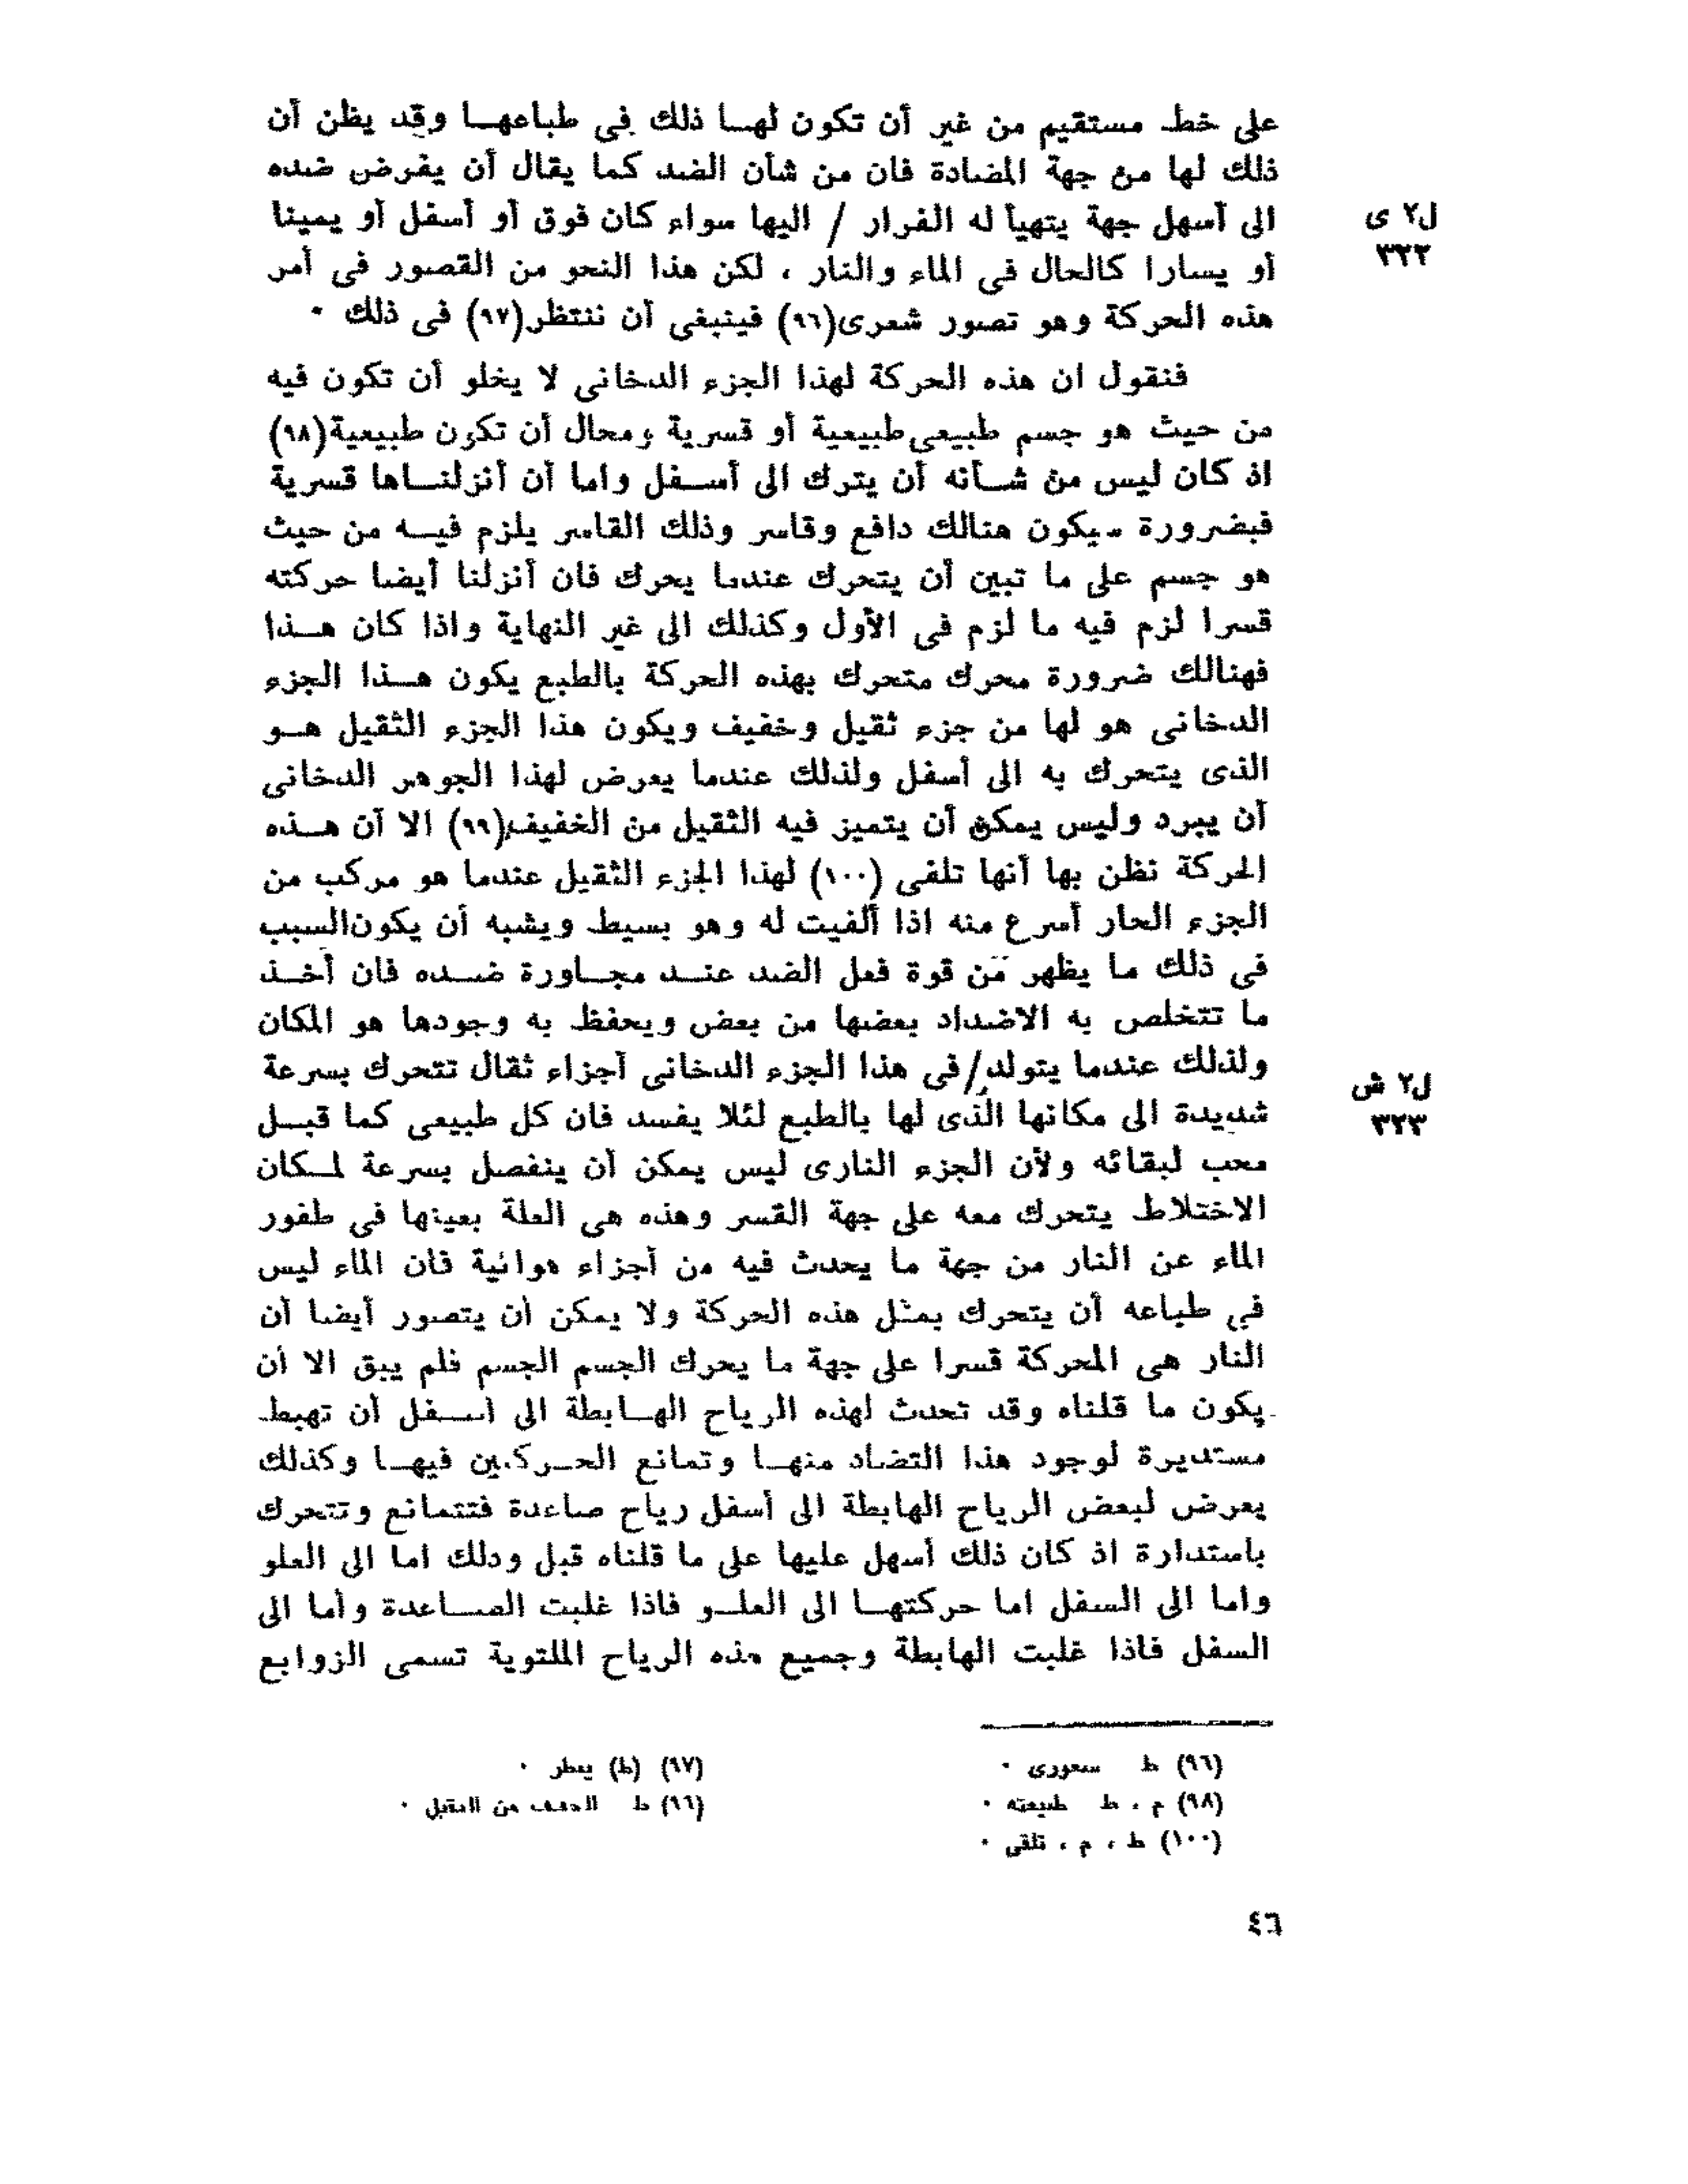 على خط مستقيم من غير أن تكون لها ذلك فى طباعها وقد يظن أن
ذلك لها من جهة المضادة فان من شأن الضد كما يقال أن يفرض ضده
الى أسهل جهة يتهيأ له الفرار / اليها سواء كان فوق أو أسفل أو يمينا
ل٢ ى
٣٢٢
أو يسارا كالحال فى الماء والنار ، لكن هذا النحو من القصور فى أمر
هذه الحركة وهو تصور شعرى(٩٦) فينبغى أن ننتظر(٩٧) فى ذلك ٠
فنقول ان هذه الحركة لهذا الجزء الدخانى لا يخلو أن تكون فيه
من حيث هو جسم طبيعى طبيعية أو قسرية ومحال أن تكون طبيعية(٩٨)
اذ كان ليس من شأنه أن يترك الى أسفل واما أن أنزلناها قسرية
فبضرورة سيكون هنالك دافع وقاسر وذلك القاسر يلزم فيه من حيث
هو جسم على ما تبين أن يتحرك عندما يحرك فان أنزلنا أيضا حركته
قسرا لزم فيه ما لزم فى الأول وكذلك الى غير النهاية واذا كان هذا
فهنالك ضرورة محرك متحرك بهذه الحركة بالطبع يكون هذا الجزء
الدخانى هو لها من جزء ثقيل وخفيف ويكون هذا الجزء الثقيل هو
الذى يتحرك به الى أسفل ولذلك عندما يعرض لهذا الجوهر الدخانى
أن يبرد وليس يمكن أن يتميز فيه الثقيل من الخفيف(٩٩) الا أن هذه
الحركة نظن بها أنها تلفى (١٠٠) لهذا الجزء الثقيل عندما هو مركب من
الجزء الحار أسرع منه اذا ألفيت له وهو بسيط ويشبه أن يكون السبب
فى ذلك ما يظهر من قوة فعل الضد عند مجاورة ضده فان أخذ
ما تتخلص به الاضداد بعضها من بعض ويحفظ به وجودها هو المكان
ولذلك عندما يتولد/ فى هذا الجزء الدخانى أجزاء ثقال تتحرك بسرعة
ل٢ ش
٣٢٣
شديدة الى مكانها الذى لها بالطبع لئلا يفسد فان كل طبيعى كما قبل
محب لبقائه ولأن الجزء النارى ليس يمكن أن ينفصل بسرعة لمكان
الاختلاط يتحرك معه على جهة القسر وهذه هى العلة بعينها فى طفور
الماء عن النار من جهة ما يحدث فيه من أجزاء هوائية فان الماء ليس
فى طباعه أن يتحرك بمثل هذه الحركة ولا يمكن أن يتصور أيضا أن
النار هى المحركة قسرا على جهة ما يحرك الجسم الجسم فلم يبق الا أن
يكون ما قلناه وقد تحدث لهذه الرياح الهابطة الى أسفل أن تهبط
مستديرة لوجود هذا التضاد منها وتمانع الحركتين فيها وكذلك
يعرض لبعض الرياح الهابطة الى أسفل رياح صاعدة فتتمانع وتتحرك
باستدارة اذ كان ذلك أسهل عليها على ما قلناه قبل وذلك اما الى العلو
واما الى السفل اما حركتها الى العلو فاذا غلبت الصاعدة وأما الى
السفل فاذا غلبت الهابطة وجميع هذه الرياح الملتوية تسمى الزوابع
(٩٦) ط سعورى ٠
(٩٧) (ط) ينطر ٠
(٩٨) م ، ط طبيعته ٠
(٩٦) ط الخفيف من الثقيل ٠
(١٠٠) ط ، م ، تلقى ٠
٤٦